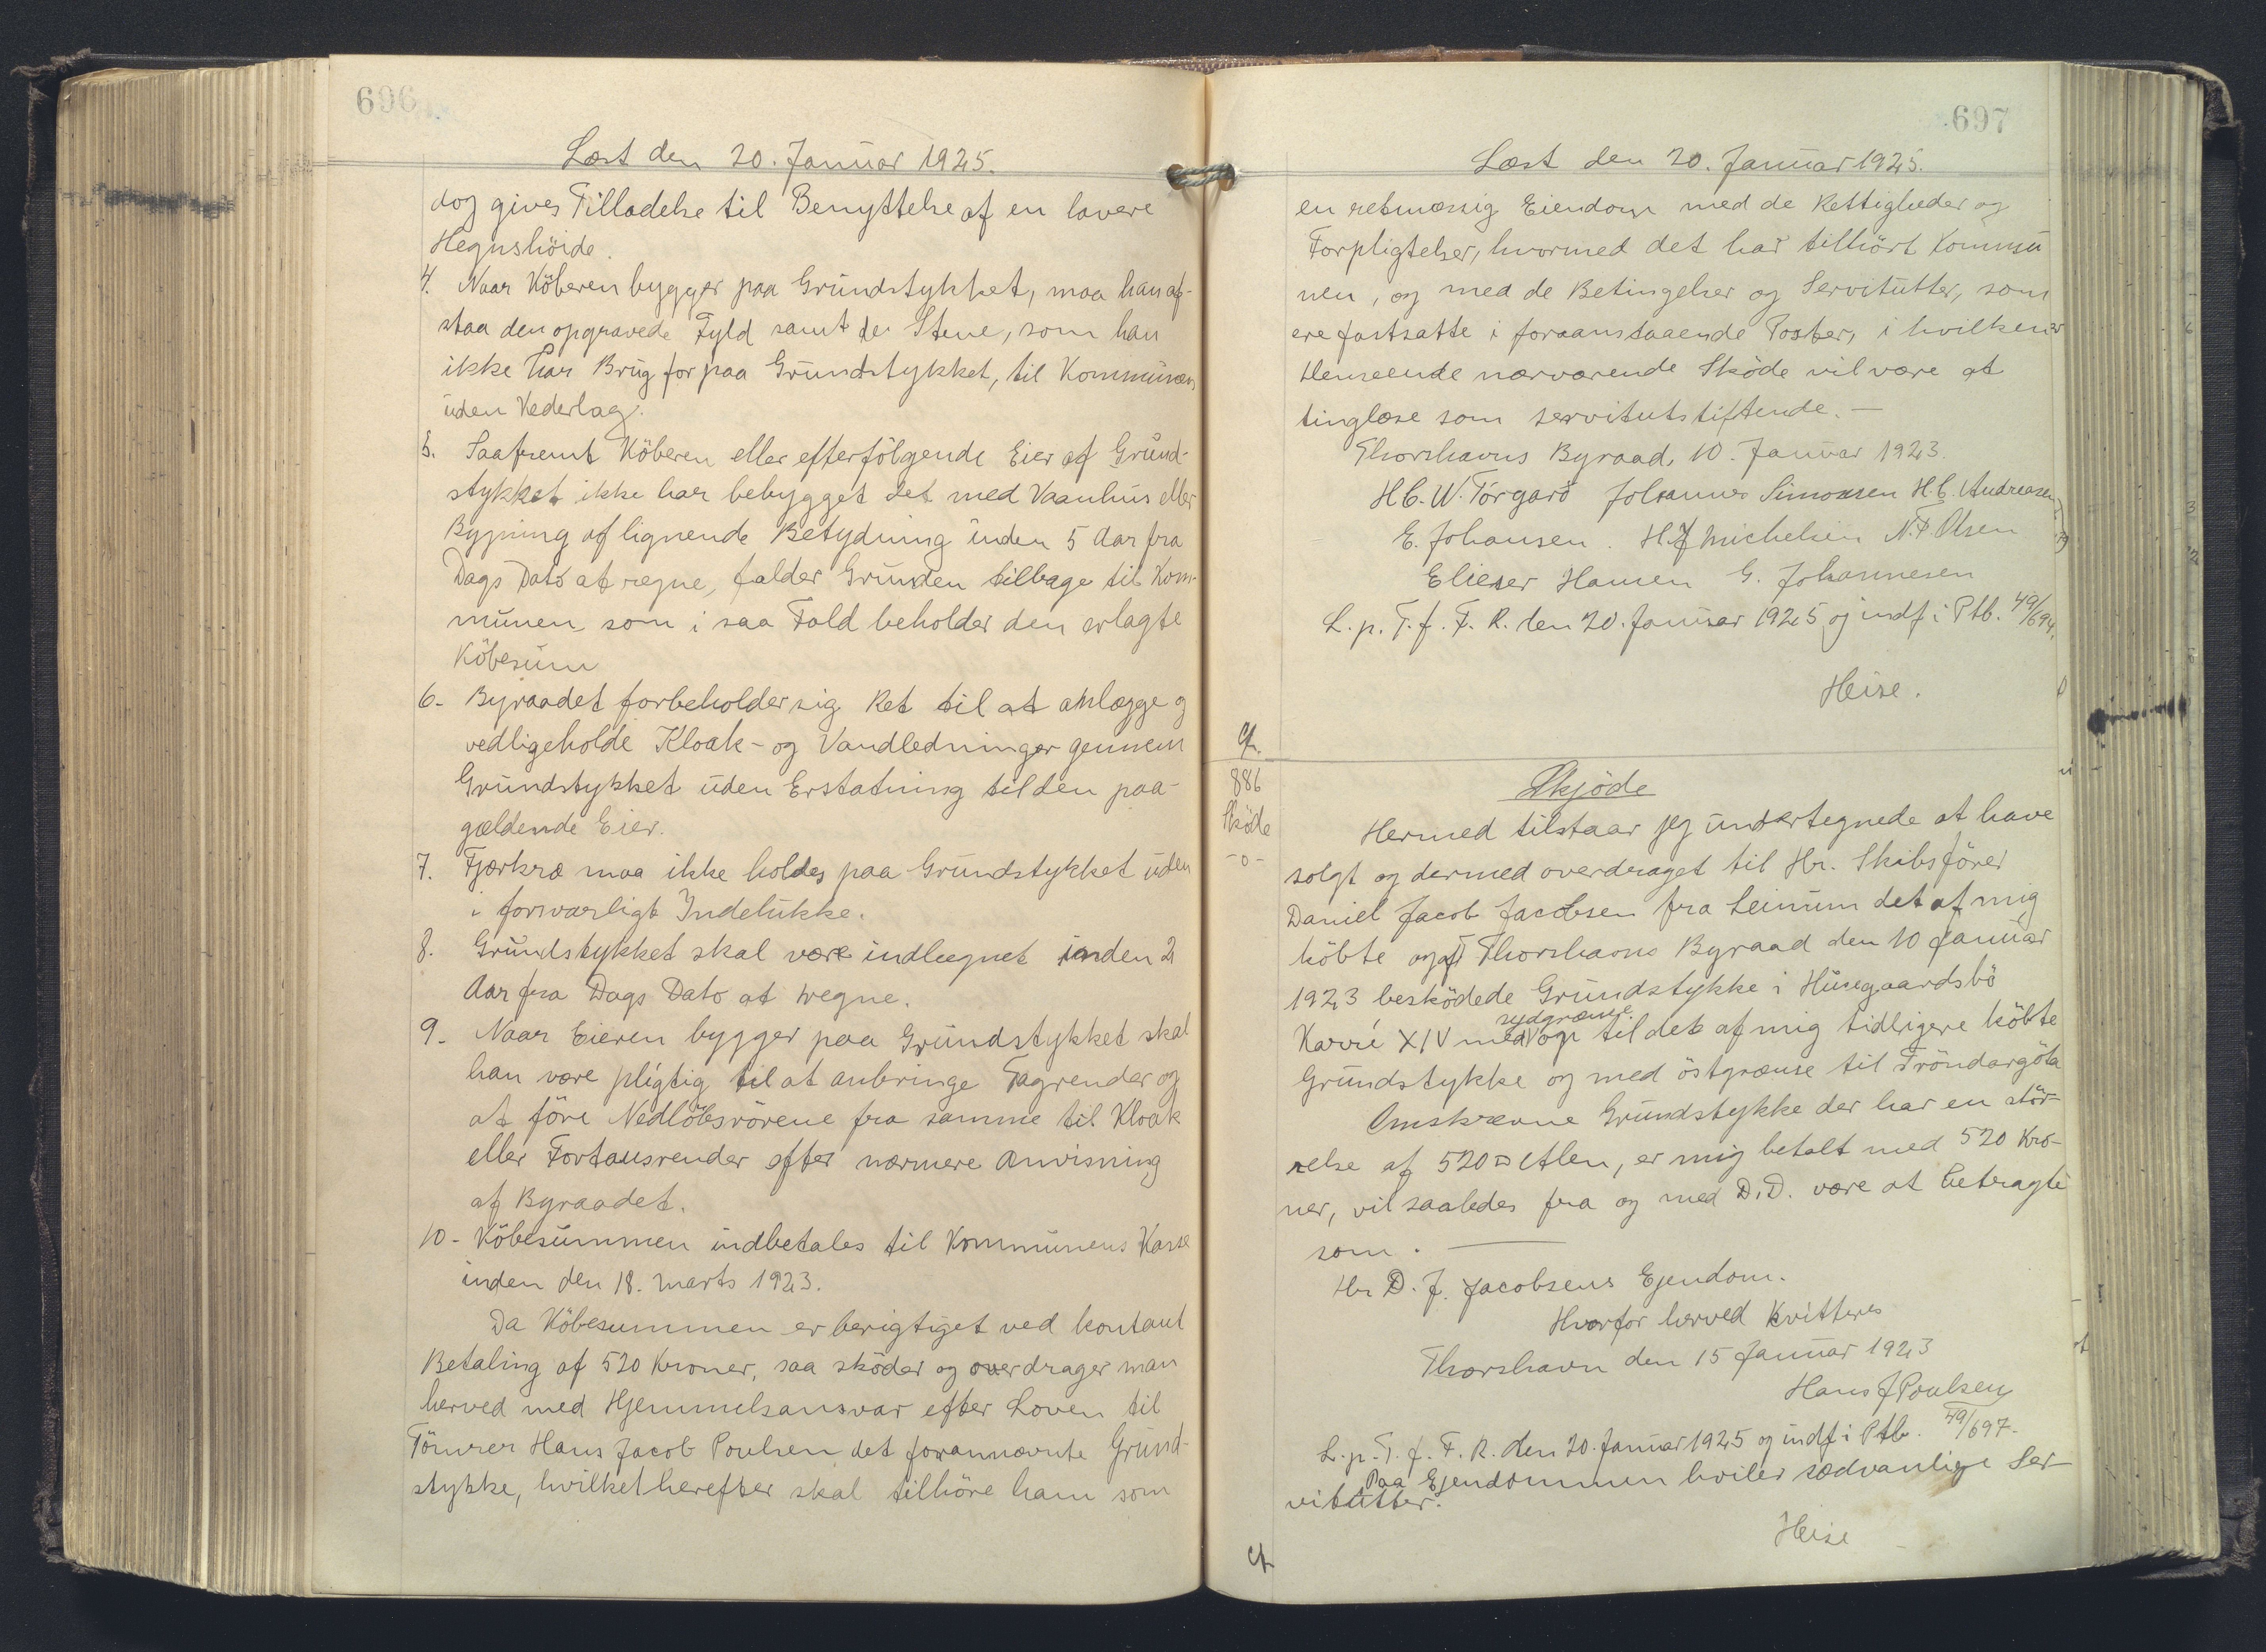 696
Læst den 20. Januar 1925.
dog gives Tilladelse til Benyttelse af en lavere
Hegnshöide.
4. Naar Köberen bygger paa Grundstykket, maa han af-
staa den opgravede Fyld samt de Stene, som han
ikke har Brug for paa Grundstykket, til Kommunen
uden Vederlag.
5. Saafremt Köberen eller efterfölgende Eier af Grund-
stykket ikke har bebygget det med Vaanhus eller
Bygning af lignende Betydning inden 5 Aar fra
Dags Dato at regne, falder Grunden tilbage til Kom-
munen som i saa Fald beholder den erlagte
Köbesum
6- Byraadet forbeholder sig Ret til at anlægge og
vedligeholde Kloak- og Vandledninger gennem
Grundstykket uden Erstatning til den paa-
gældende Eier.
7. Fjærkræ maa ikke holdes paa Grundstykket uden
i forsvarligt Indelukke.
8. Grundstykket skal være indhegnet inden 2
Aar fra Dags Dato at regne.
9- Naar Eieren bygger paa Grundstykket skal
han være pligtig til at anbringe Tagrender og
at före Nedlöbsrörene fra samme til Kloak
eller Fortausrender efter nærmere Anvisning
af Byraadet.
10- Köbesummen indbetales til Kommunens Kasse
inden den 18. Marts 1923.
Da Köbesummen er berigtiget ved kontant
Betaling af 520 Kroner, saa sköder og overdrager man
herved med Hjemmelsansvar efter Loven til
Tömrer Hans Jacob Poulsen det forannævnte Grund-
stykke, hvilket herefter skal tilhöre ham som
697
Læst den 20. Januar 1925.
en retmæssig Eiendom med de Rettigheder og
Forpligtelser, hvormed det har tilhört Kommu
nen, og med de Betingelser og Servitutter, som
ere fastsatte i foranstaaende Poster, i hvilken
Henseende nærværende Sköde vil være at
tinglæse som servitutstiftende. —
Thorshavns Byraad, 10. Januar 1923.
H.C.W. Tórgarð Johannes Simonsen H.C. Andreasen
E. Johansen. H. J Michelsen N.P. Olsen
Elieser Hansen G. Johannesen
L. p. T. f. F. R. den 20. Januar 1925 og indf i Ptb. 49/694.
Heise.
886
Sköde
-o-
Skjöde
Hermed tilstaar jeg undertegnede at have
solgt og dermed overdraget til Hr. Skibsförer
Daniel Jacob Jacobsen fra Leinum det af mig
köbte og af Thorshavns Byraad den 10 Januar
1923 besködede Grundstykke i Húsegaardsbö
sydgrænse
Karré XIV med op til det af mig tidligere köbte
Grundstykke og med östgrænse til Tröndargöta
Omskrevne Grundstykke der har en stör-
relse af 520 □ Alen, er mig betalt med 520 Kro-
ner, vil saaledes fra og med D.D. være at betragte
som. ———
Hr D. J. Jacobsens Ejendom.
Hvorfor herved Kvitteres
Thorshavn den 15 Januar 1923
Hans J Poulsen
L. p. T. f. F. R. den 20. Januar 1925 og indf i Ptb. 49/697-
Paa Ejendommen hviler sædvanlige Ser-
vitutter.
Heise